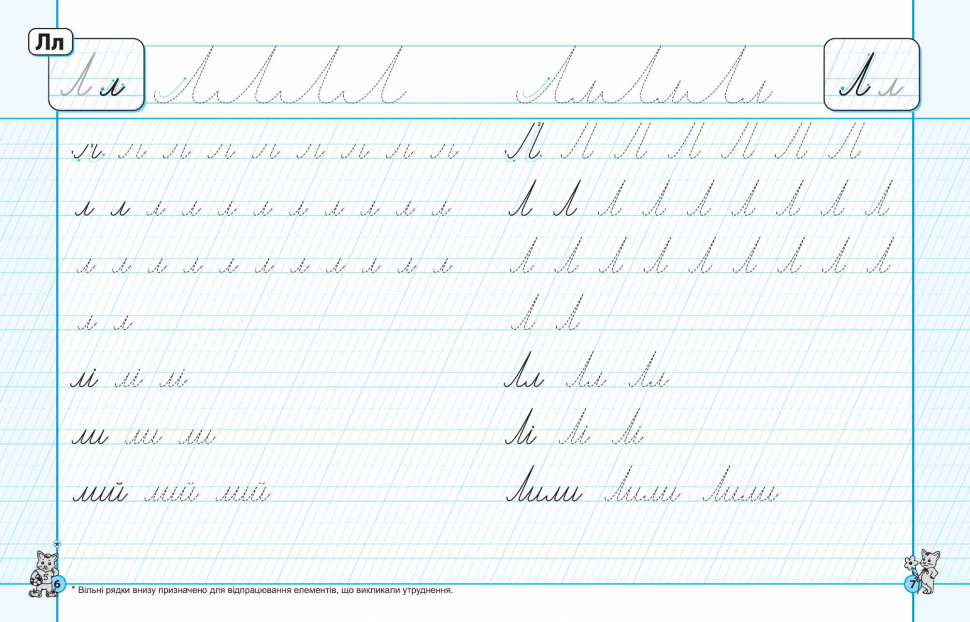 Лл
Л л
Л Л Л Л
л л л л л л л л л
л л л л л л л л л л л
л л л л л л л л л л л
л л
лі лі лі
ли ли ли
лий лий лий
6
* Вільні рядки внизу призначено для відпрацювання елементів, що викликали утруднення.
ЛлЛлЛл
Л л
Л Л Л Л Л Л Л
Л Л Л Л Л Л Л Л Л
Л Л Л Л Л Л Л Л Л
Л Л
Лл Лл Лл
Лі Лі Лі
Лили Лили Лили
7